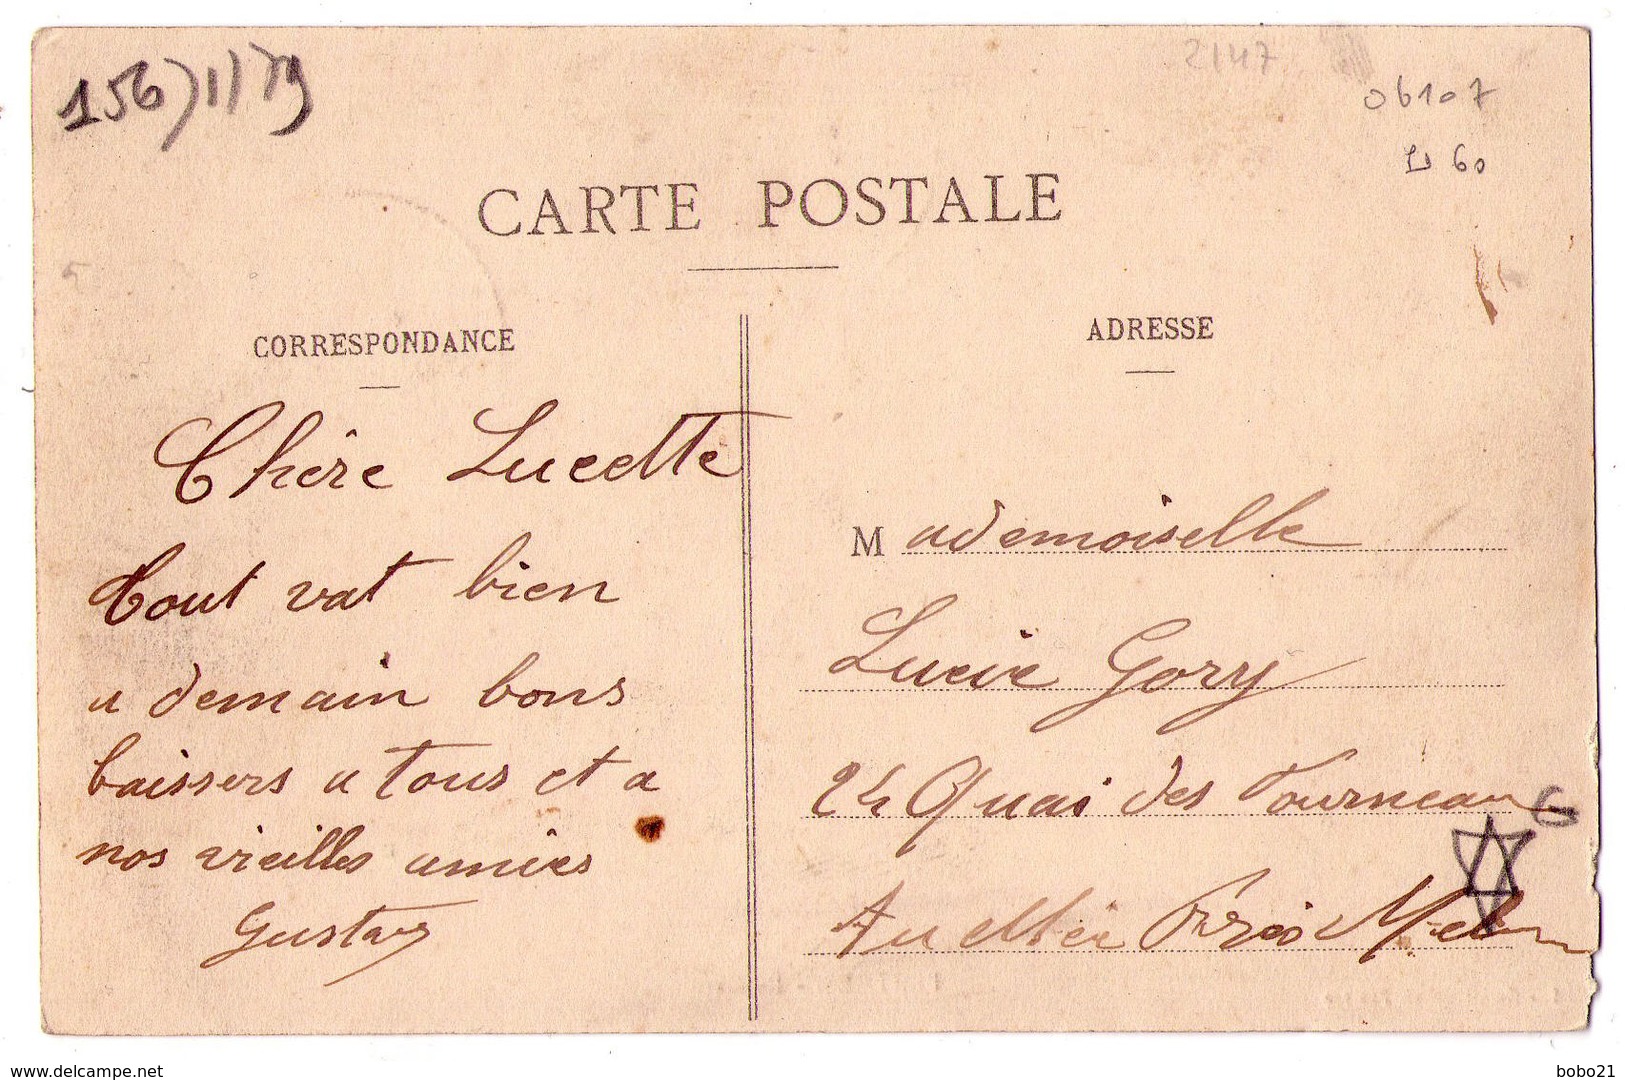 156)1)79
2147
06107
60
CARTE POSTALE
CORRESPONDANCE
ADRESSE
Chère Lucette
tout vat bien
a demain bons
baissers a tous et a
nos vieilles amies
Gustav
Mademoiselle
Lucie Gory
24 Quai des Fourneaux
Au Mée Près Melun
www.delcampe.net
bobo21